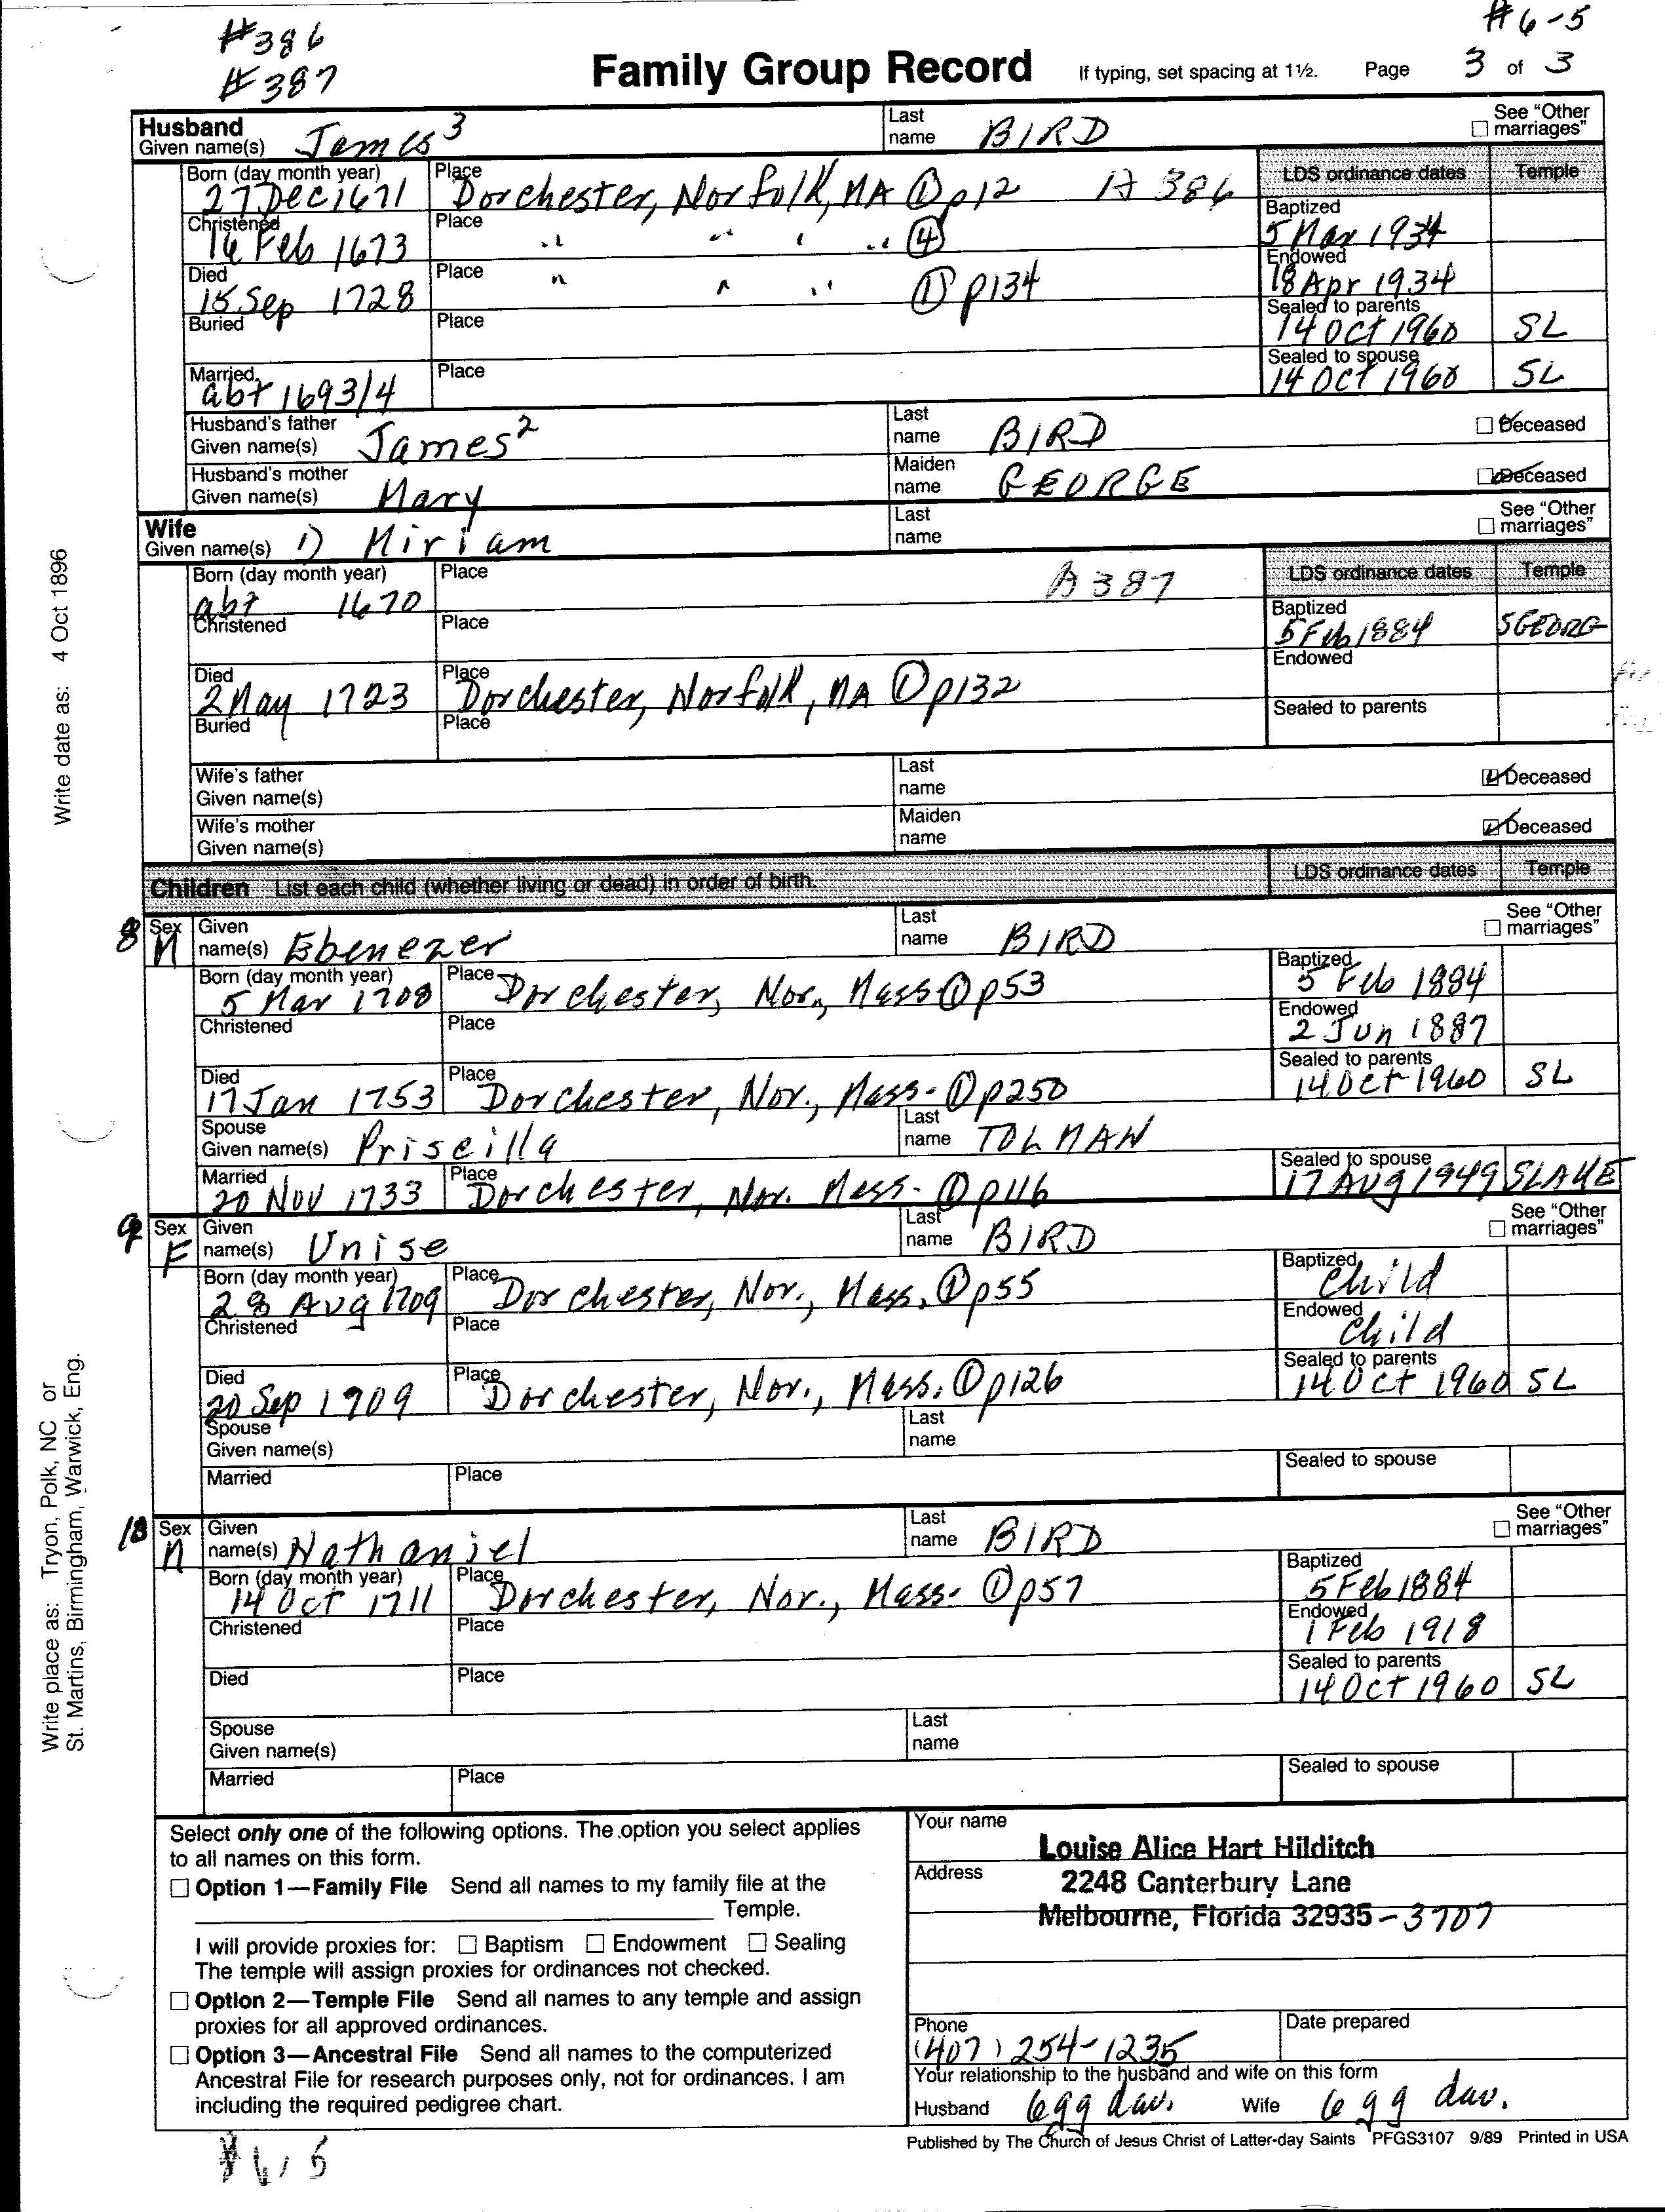 #386
#387
#6-5
Family Group Record If typing, set spacing at 1½. Page 3 of 3
Husband
Given name(s) James³ Last name BIRD See "Other marriages"
Born (day month year) 27 Dec 1671 Place Dorchester, Norfolk, MA ① p12 A 386 LDS ordinance dates Temple
Christened 16 Feb 1673 Place " " " " ④ Baptized 5 Mar 1934
Died 15 Sep 1728 Place " " " ① p134 Endowed 18 Apr 1934
Buried Place Sealed to parents 14 Oct 1960 SL
Married abt 1693/4 Place Sealed to spouse 14 Oct 1960 SL
Husband's father
Given name(s) James² Last name BIRD Deceased
Husband's mother
Given name(s) Mary Maiden name GEORGE Deceased
Wife
Given name(s) 1) Miriam Last name See "Other marriages"
Born (day month year) abt 1670 Place A 387 LDS ordinance dates Temple
Christened Place Baptized 5 Feb 1884 SGEORG
Endowed
Died 2 May 1723 Place Dorchester, Norfolk, MA ① p132
Buried Place Sealed to parents
Wife's father
Given name(s) Last name Deceased
Wife's mother
Given name(s) Maiden name Deceased
Children List each child (whether living or dead) in order of birth. LDS ordinance dates Temple
8 Sex M Given name(s) Ebenezer Last name BIRD See "Other marriages"
Born (day month year) 5 Mar 1708 Place Dorchester, Nor, Mass ① p53 Baptized 5 Feb 1884
Christened Place Endowed 2 Jun 1887
Died 17 Jan 1753 Place Dorchester, Nor., Mass. ① p250 Sealed to parents 14 Oct 1960 SL
Spouse
Given name(s) Priscilla Last name TOLMAN
Married 20 Nov 1733 Place Dorchester, Nor. Mass. ① p116 Sealed to spouse 17 Aug 1949 SLAKE
9 Sex F Given name(s) Unise Last name BIRD See "Other marriages"
Born (day month year) 28 Aug 1709 Place Dorchester, Nor., Mass, ① p55 Baptized Child
Christened Place Endowed Child
Died 20 Sep 1909 Place Dorchester, Nor., Mass. ① p126 Sealed to parents 14 Oct 1960 SL
Spouse
Given name(s) Last name
Married Place Sealed to spouse
10 Sex M Given name(s) Nathaniel Last name BIRD See "Other marriages"
Born (day month year) 14 Oct 1711 Place Dorchester, Nor., Mass. ① p57 Baptized 5 Feb 1884
Christened Place Endowed 1 Feb 1918
Died Place Sealed to parents 14 Oct 1960 SL
Spouse
Given name(s) Last name
Married Place Sealed to spouse
Select only one of the following options. The option you select applies
to all names on this form.
Option 1—Family File Send all names to my family file at the
Temple.
I will provide proxies for: Baptism Endowment Sealing
The temple will assign proxies for ordinances not checked.
Option 2—Temple File Send all names to any temple and assign
proxies for all approved ordinances.
Option 3—Ancestral File Send all names to the computerized
Ancestral File for research purposes only, not for ordinances. I am
including the required pedigree chart.
Your name Louise Alice Hart Hilditch
Address 2248 Canterbury Lane
Melbourne, Florida 32935-3707
Phone (407) 254-1235 Date prepared
Your relationship to the husband and wife on this form
Husband 6gg dau. Wife 6gg dau.
Published by The Church of Jesus Christ of Latter-day Saints PFGS3107 9/89 Printed in USA
Write date as: 4 Oct 1896
Write place as: Tryon, Polk, NC or
St. Martins, Birmingham, Warwick, Eng.